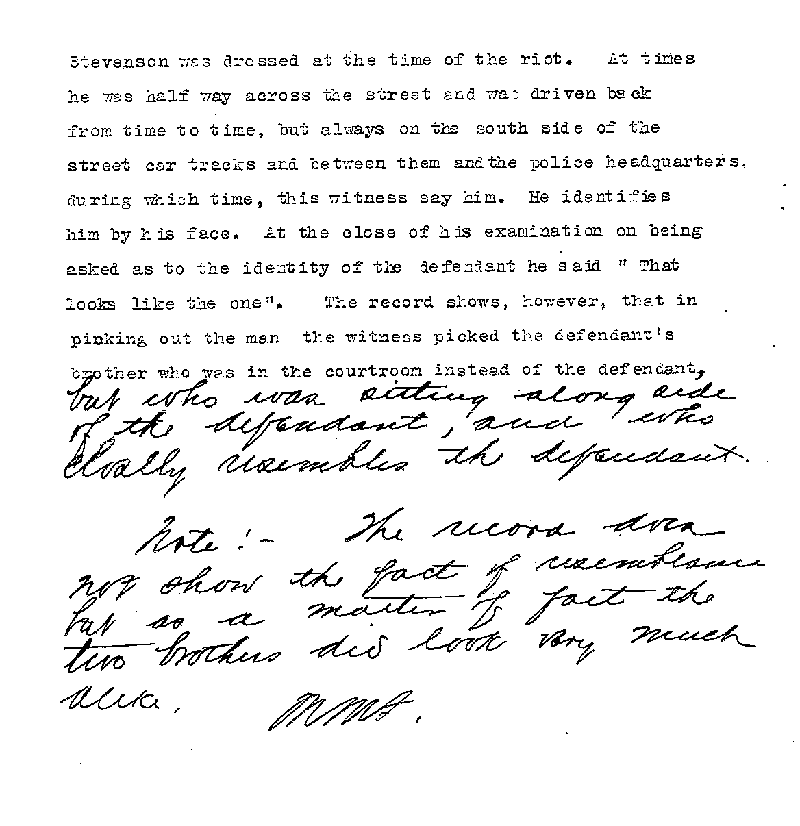 Stevenson was dressed at the time of the riot. At times
he was half way across the street and was driven back
from time to time, but always on the south side of the
street car tracks and between them andthe police headquarters,
during which time, this witness say him. He identifies
him by his face. At the close of his examination on being
asked as to the identity of the defendant he said " That
looks like the one". The record shows, however, that in
pinking out the man the witness picked the defendant's
brother who was in the courtroom instead of the defendant,
but who was sitting along side
of the defendant, and who
closely resembles the defendant.
Note:- The record does
not show the fact of resemblance
but as a matter of fact the
two brothers did look very much
alike.